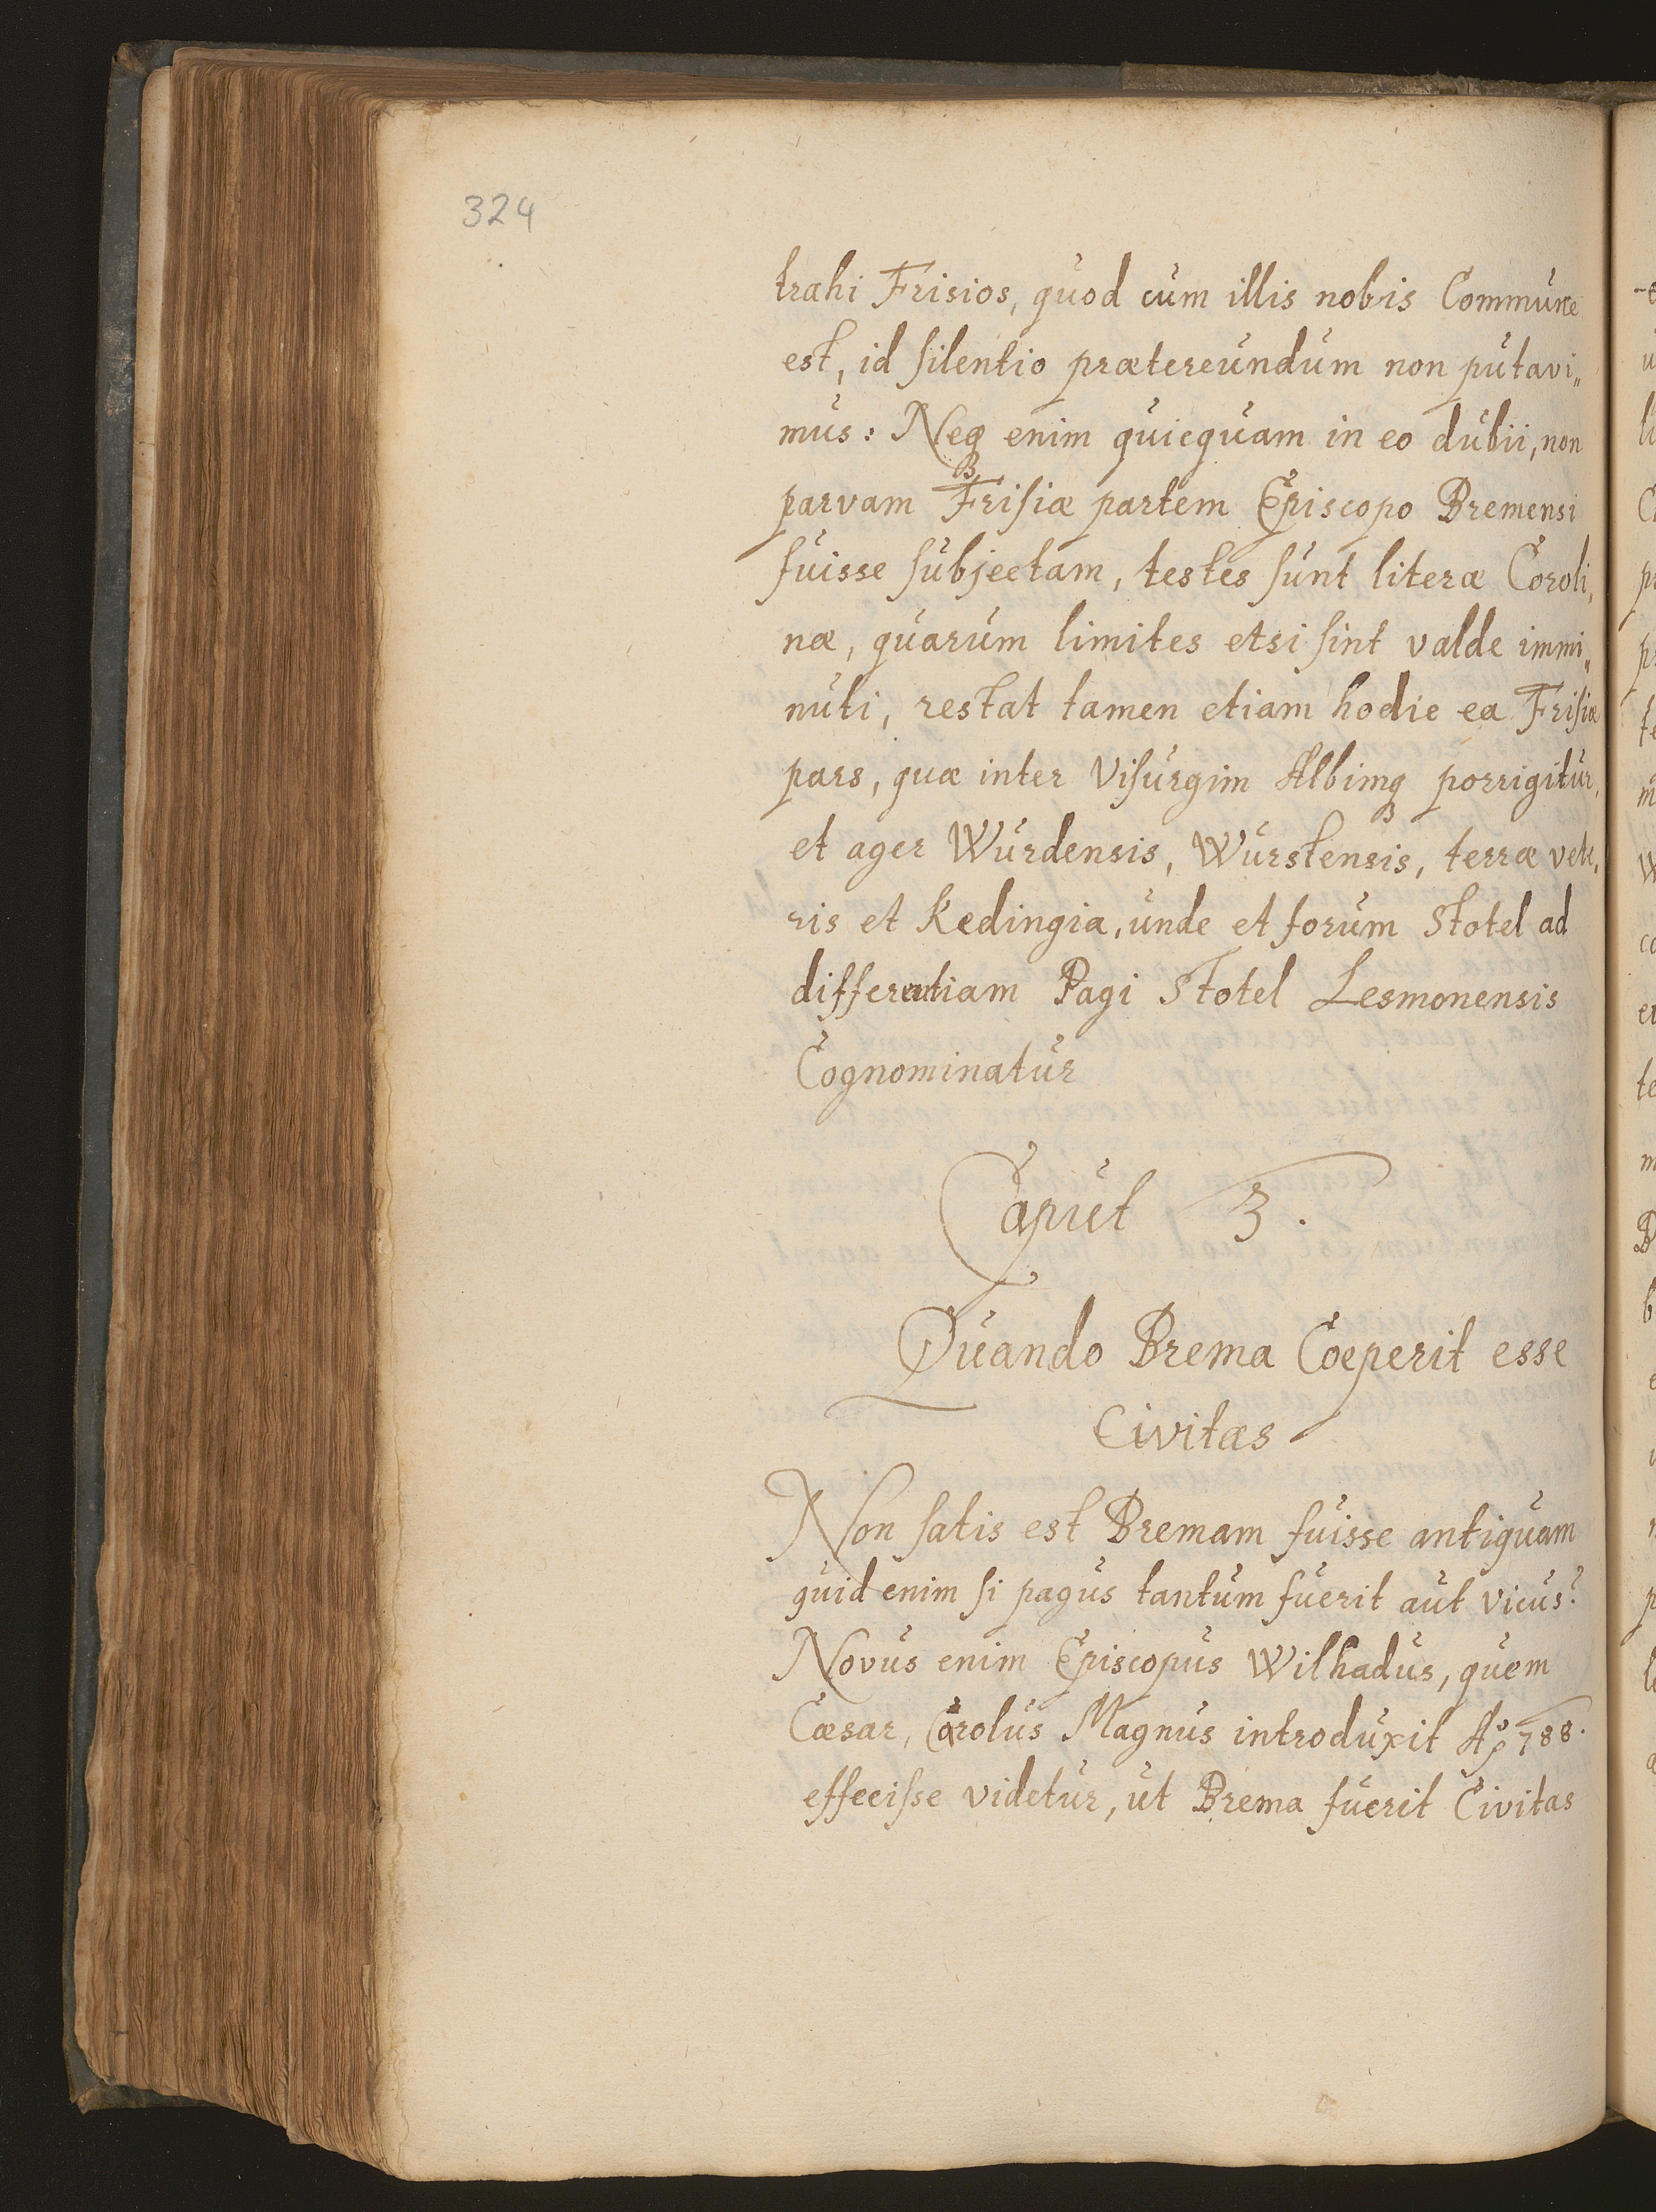 324
trahi Frisios, quod cum illis nobis Commune
est, id silentio prætereundum non putavi„
mus: Neqꝫ enim quicquam in eo dubii, non
parvam Frisiæ partem Episcopo Bremensi
fuisse subjectam, testes sunt literæ Coroli„
næ, quarum limites etsi sint valde immi„
nuti, restat tamen etiam hodie ea Frisiæ
pars, quæ inter Visurgim Albimqꝫ porrigitur,
et ager Wurdensis, Wurstensis, terræ vete„
ris et Kedingia, unde et forum Stotel ad
differentiam Pagi Stotel Lesmonensis
Cognominatur
Caput 3.
Quando Brema Coeperit esse
Civitas
Non satis est Bremam fuisse antiquam
quid enim si pagus tantum fuerit aut vicus?
Novus enim Episcopus Wilhadus, quem
Cæsar, Carolus Magnus introduxit Aͦ 788.
effecisse videtur, ut Brema fuerit Civitas